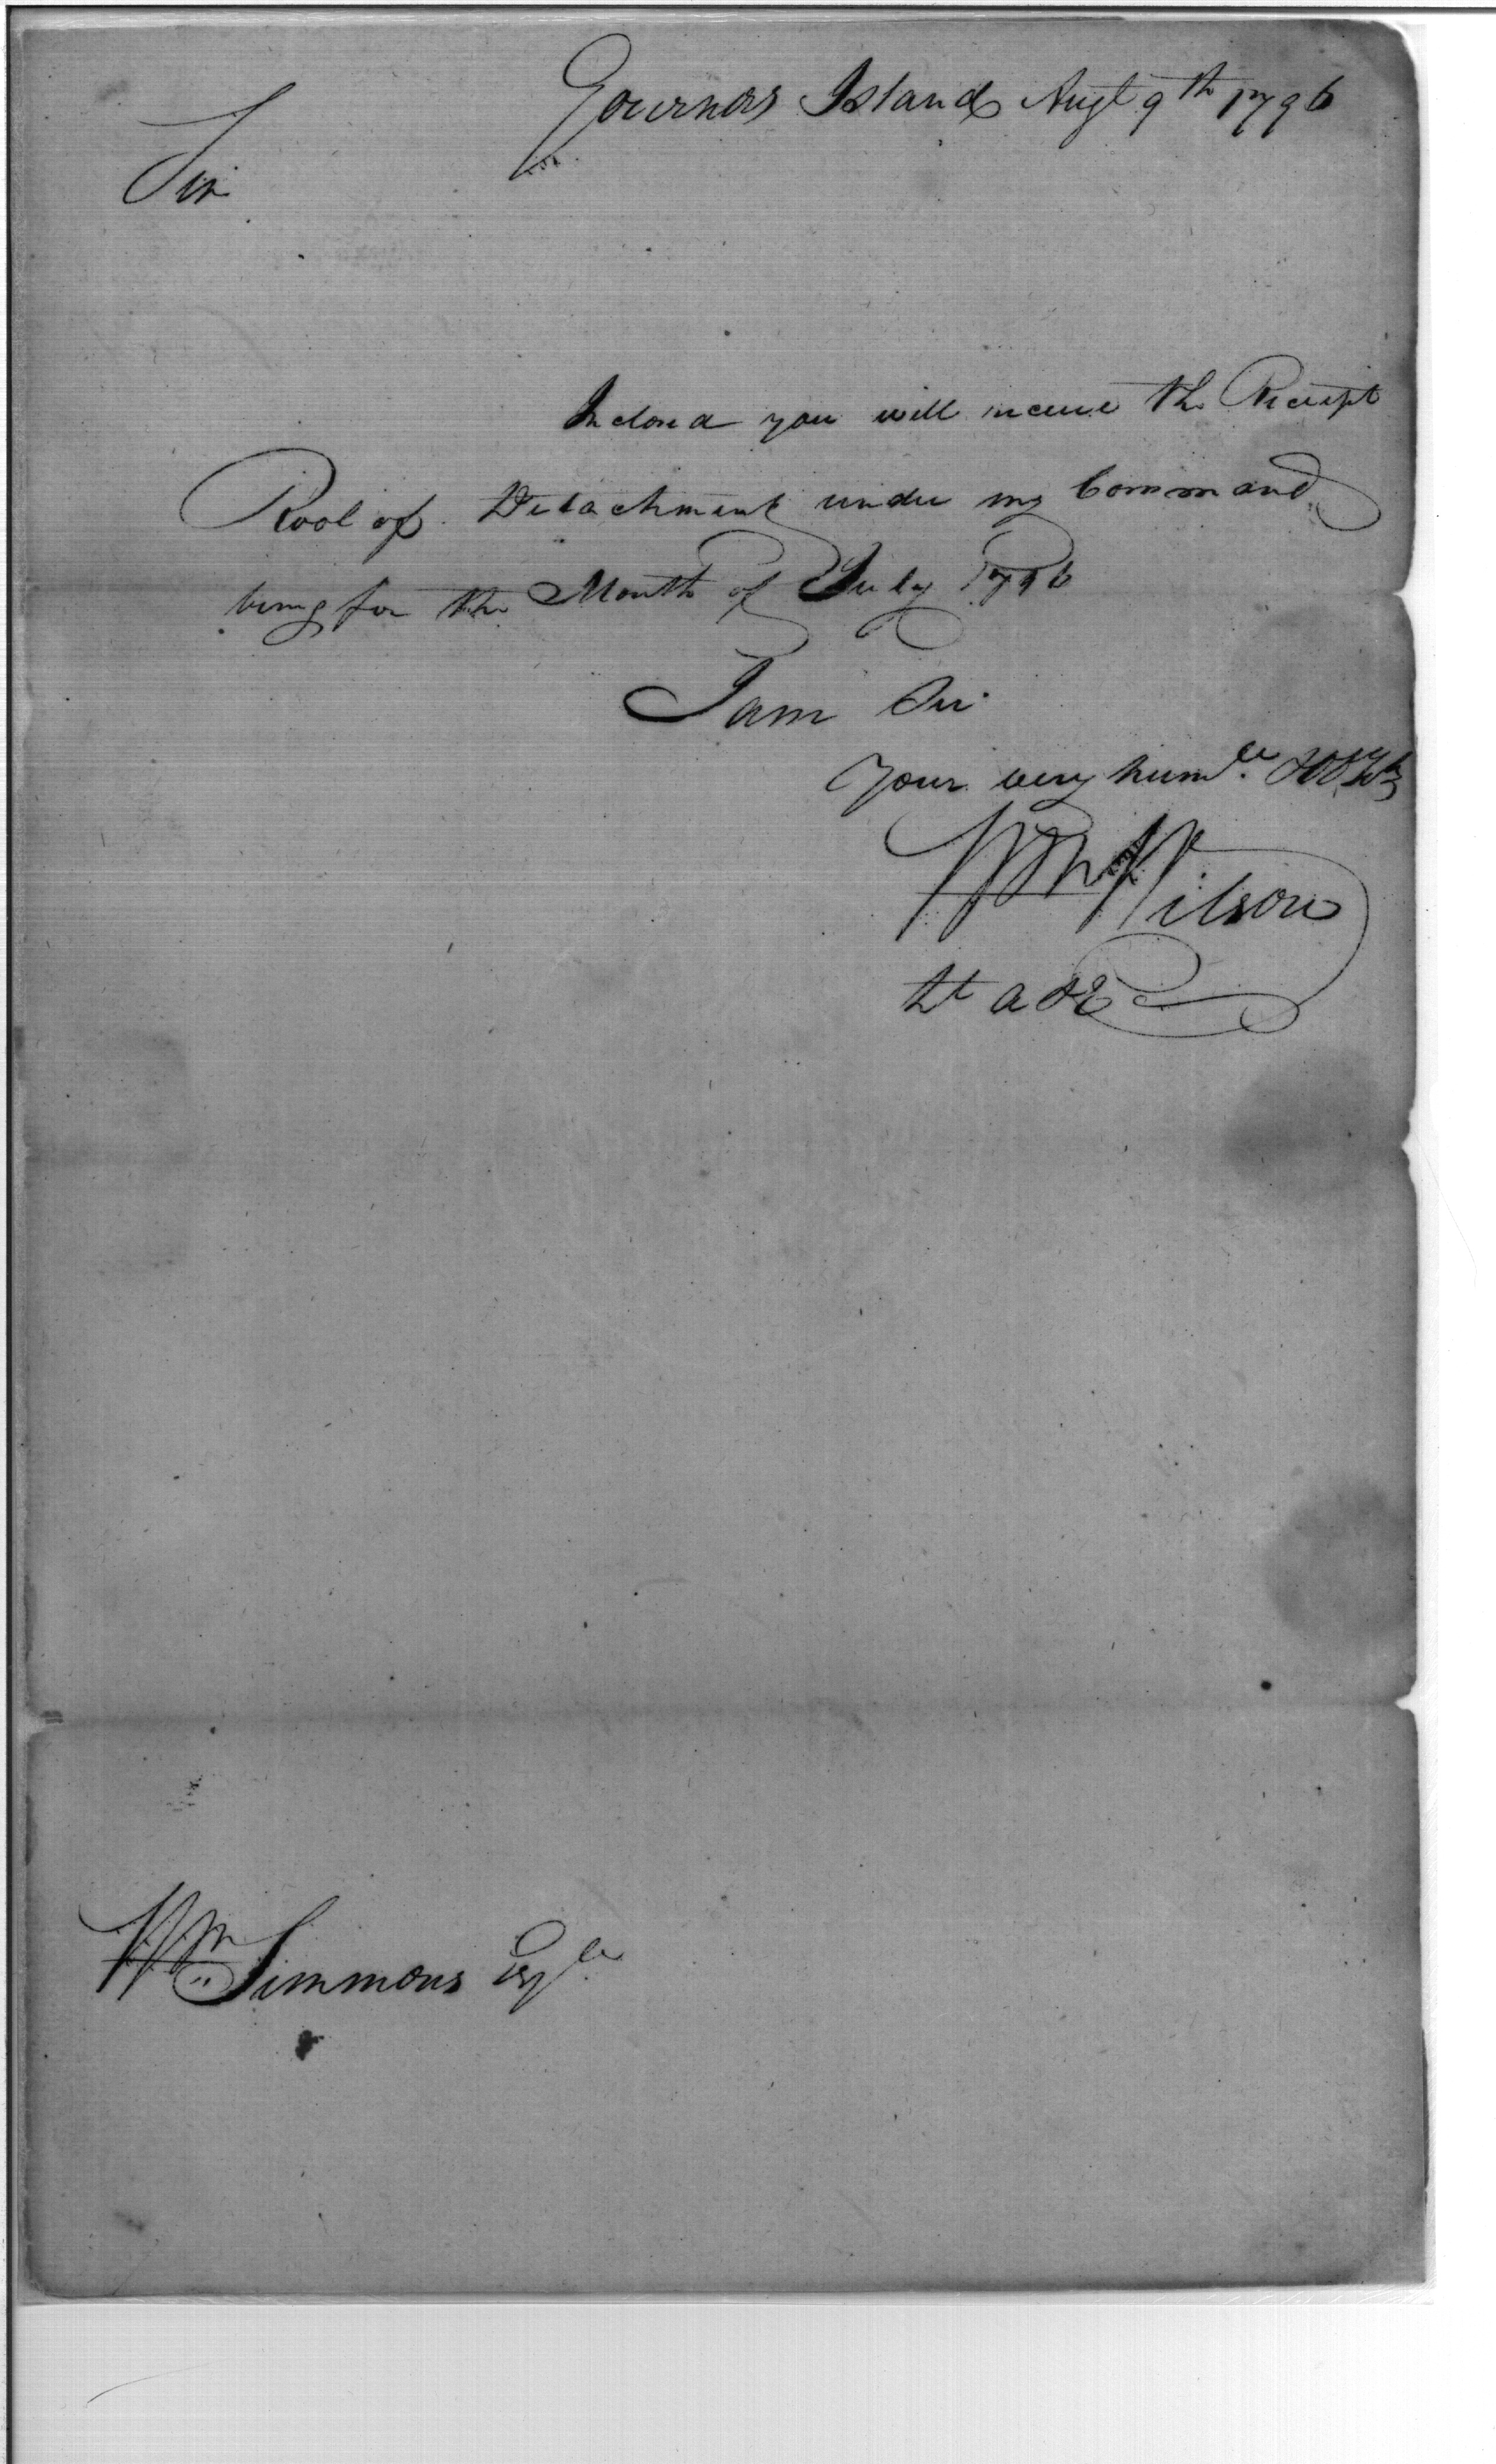 Governors Island Augt 9th 1796
Sir
Inclosed you will receive the Receipt
Rool of Detachment under my Command
being for the Month of July 1796
I am Sir
Your very humle
Wm Wilson
Lt a & E
Wm Simmons Esqr